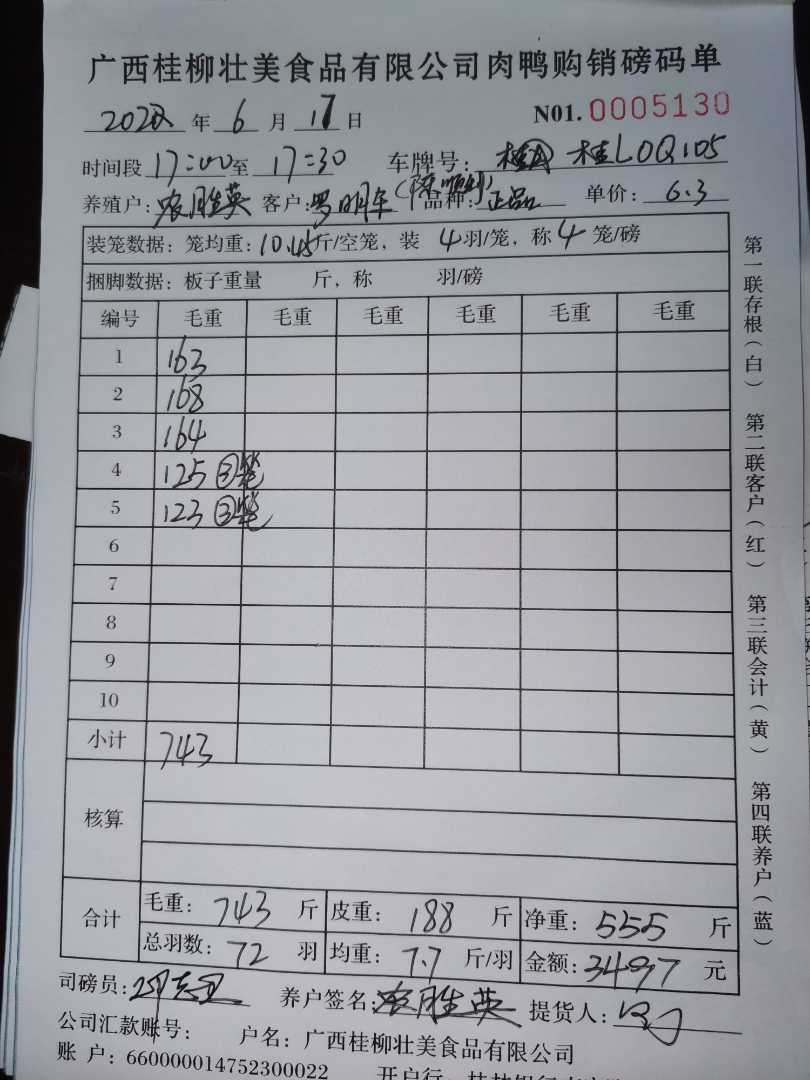 广西桂柳壮美食品有限公司肉鸭购销磅码单
2022 年 6 月 17 日 N01. 0005130
时间段 17:00 至 17:30 车牌号: 桂LOQ105
养殖户: 农胜英 客户: 罗明军 品种: 正品 单价: 6.3
装笼数据: 笼均重: 10.45 斤/空笼, 装 4 羽/笼, 称 4 笼/磅
捆脚数据: 板子重量 斤, 称 羽/磅
编号 毛重 毛重 毛重 毛重 毛重 毛重
1 163
2 168
3 164
4 125 ③笼
5 123 ③笼
6
7
8
9
10
小计 743
核算
合计 毛重: 743 斤 皮重: 188 斤 净重: 555 斤
总羽数: 72 羽 均重: 7.7 斤/羽 金额: 3497 元
司磅员: 养户签名: 农胜英 提货人:
公司汇款账号: 户名: 广西桂柳壮美食品有限公司
账 户: 660000014752300022 开户行:
第一联存根(白) 第二联客户(红) 第三联会计(黄) 第四联养户(蓝)